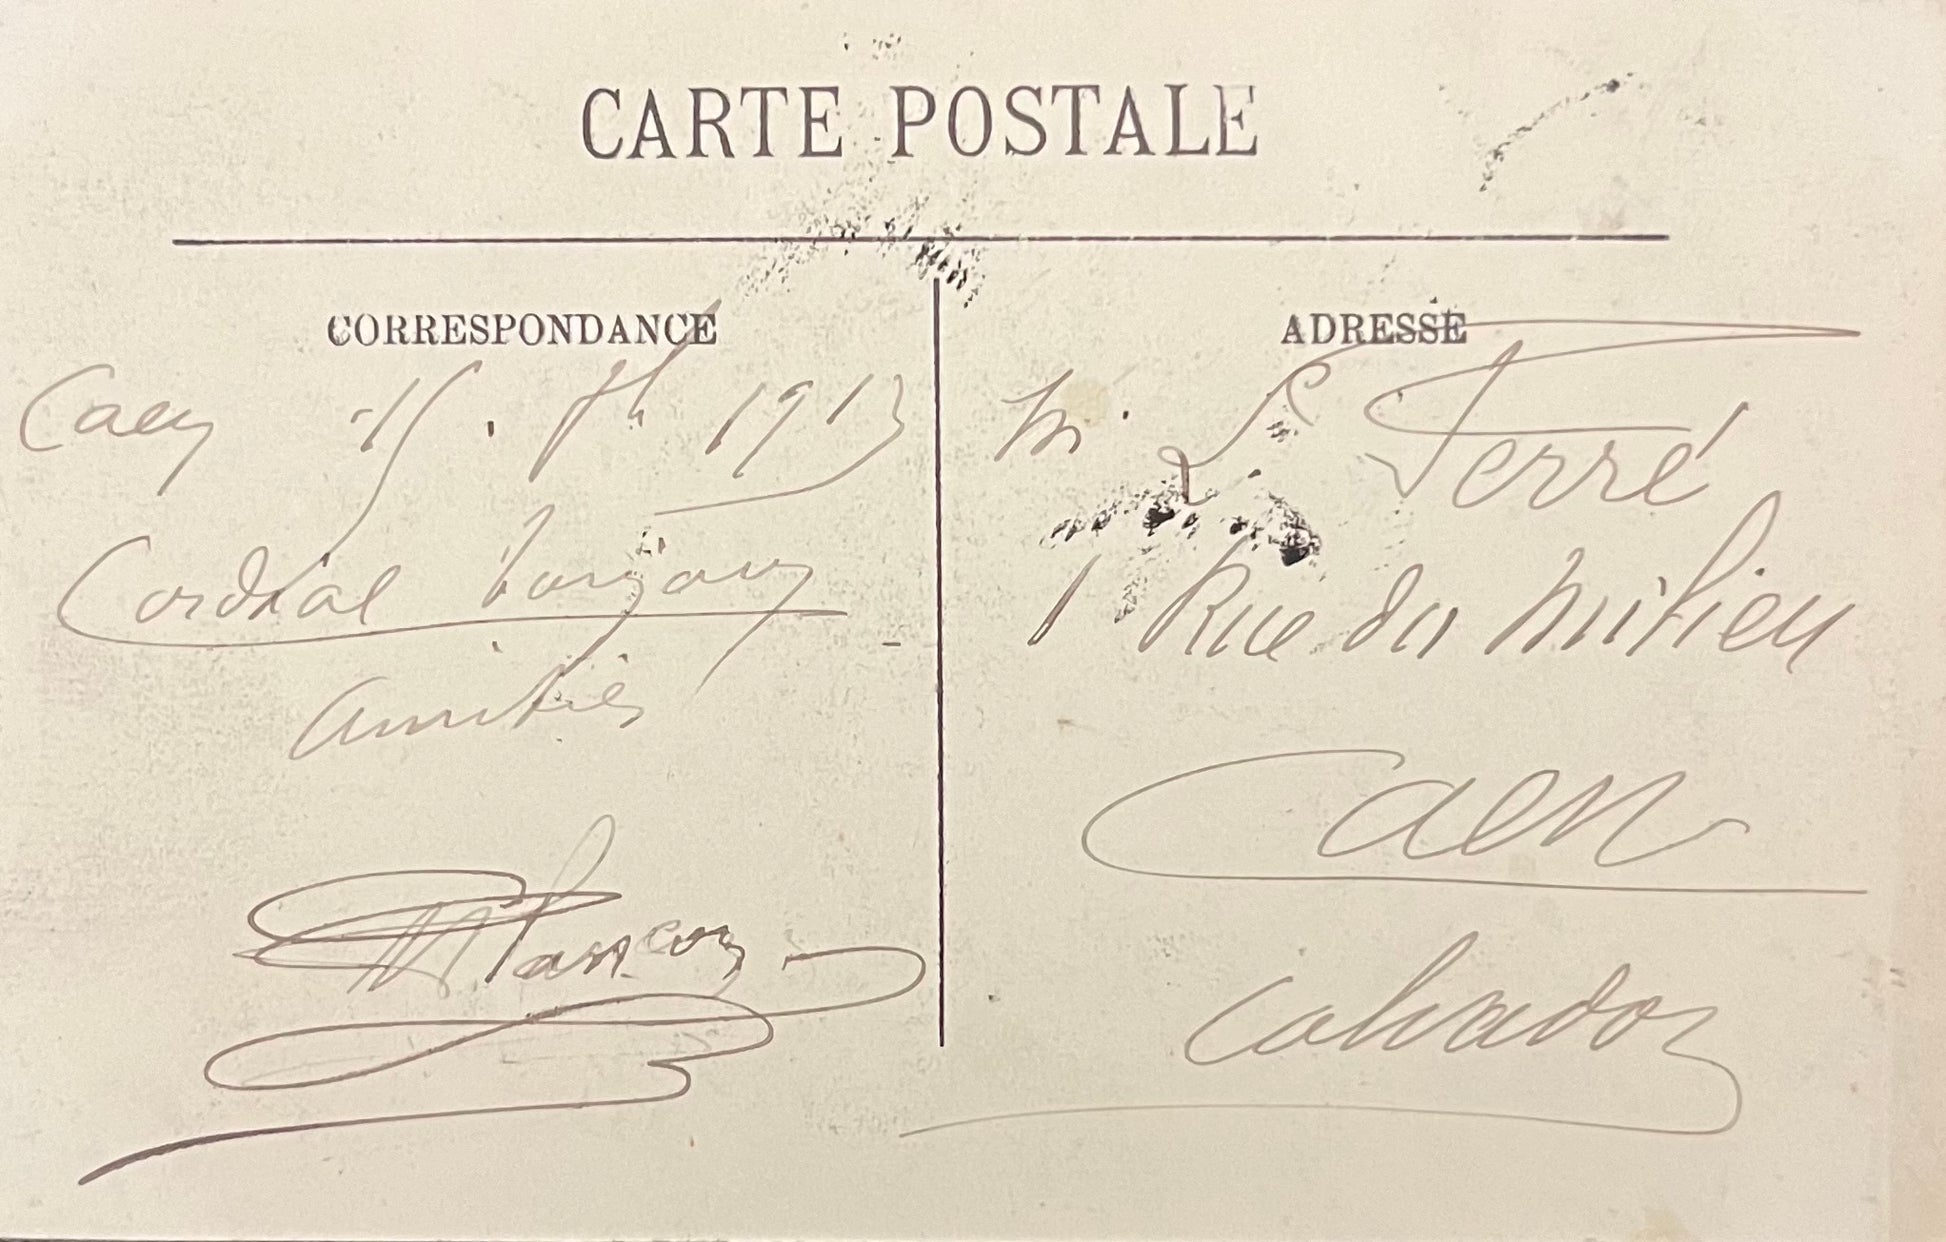 CARTE POSTALE
CORRESPONDANCE
Caen 1913
Cordial bonjour
amitiés
ADRESSE
M. L. Ferré
1 Rue du Milieu
Caen
Calvados